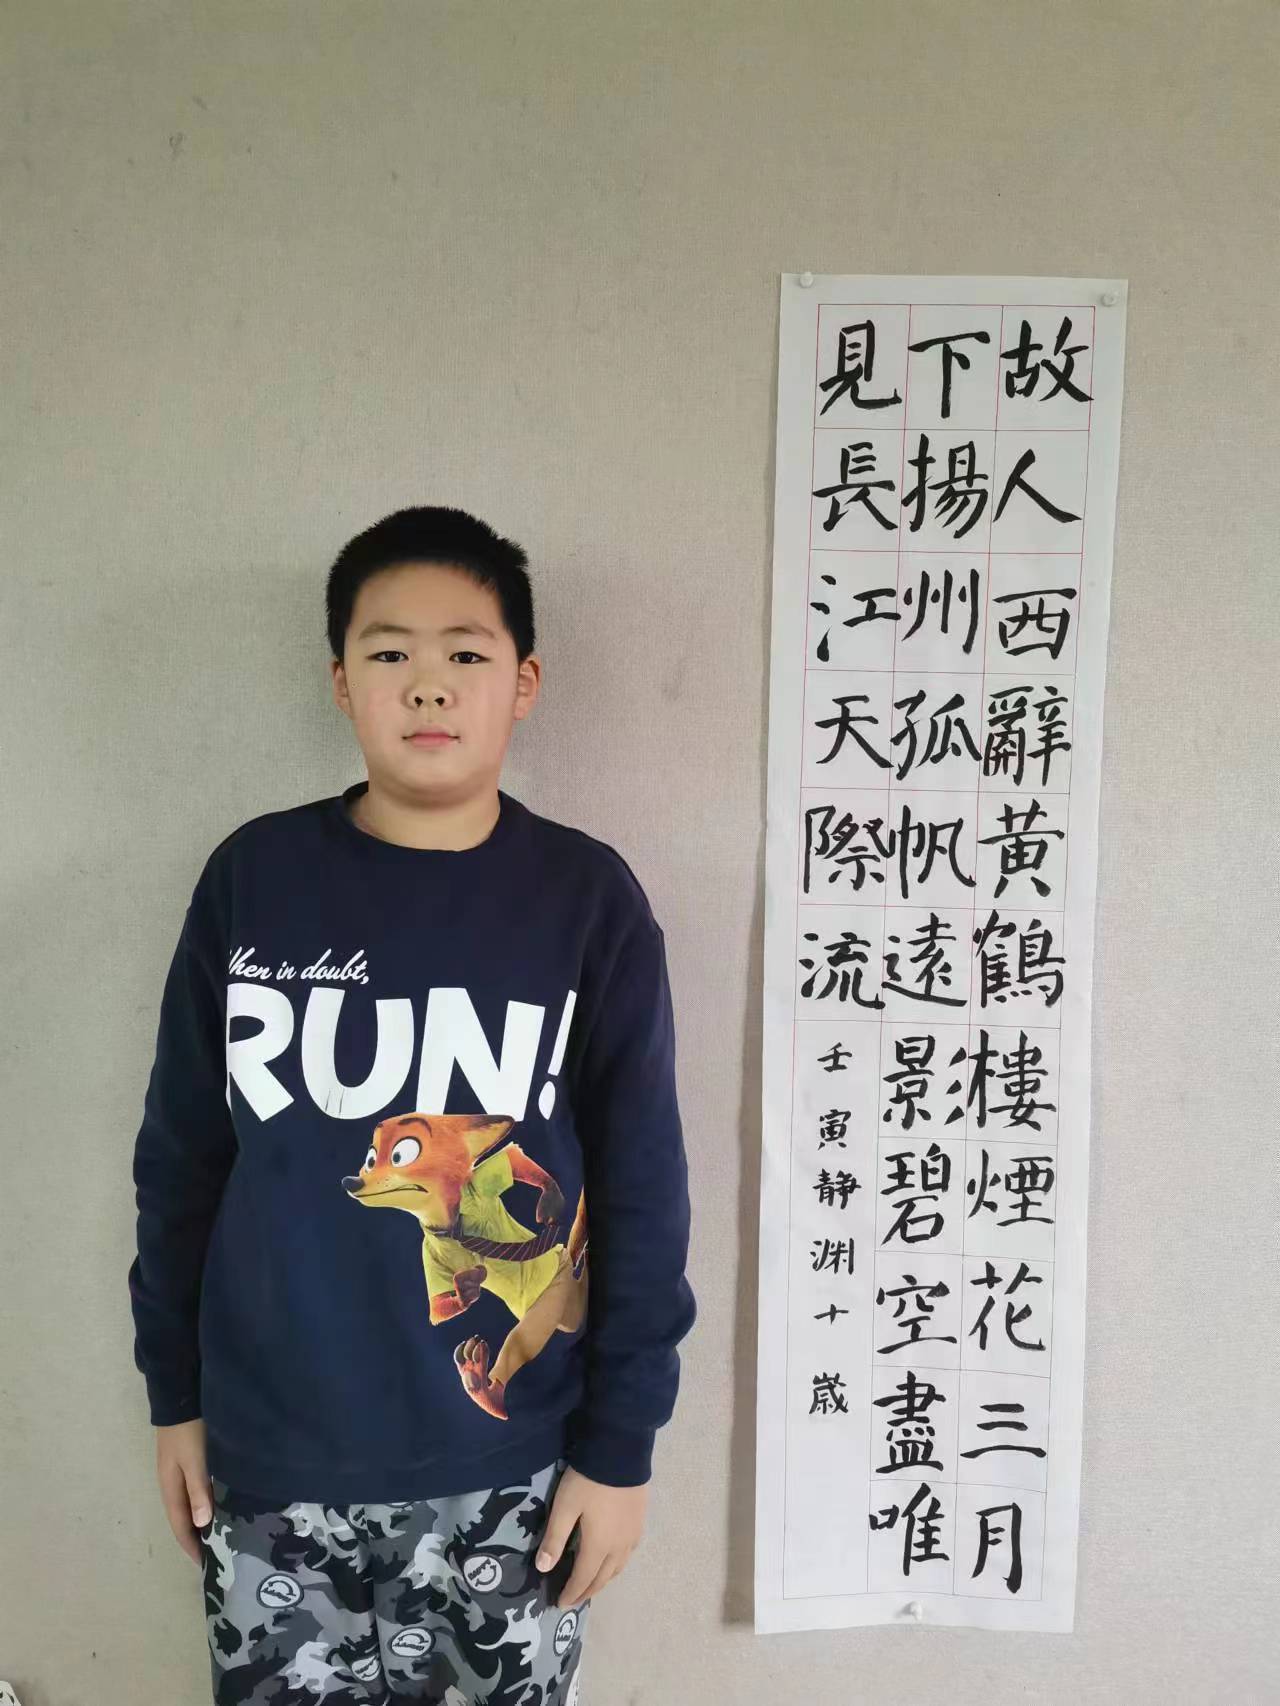 故人西辭黃鶴樓煙花三月
下揚州孤帆遠影碧空盡唯
見長江天際流
壬寅静渊十歲
When in doubt,
RUN!